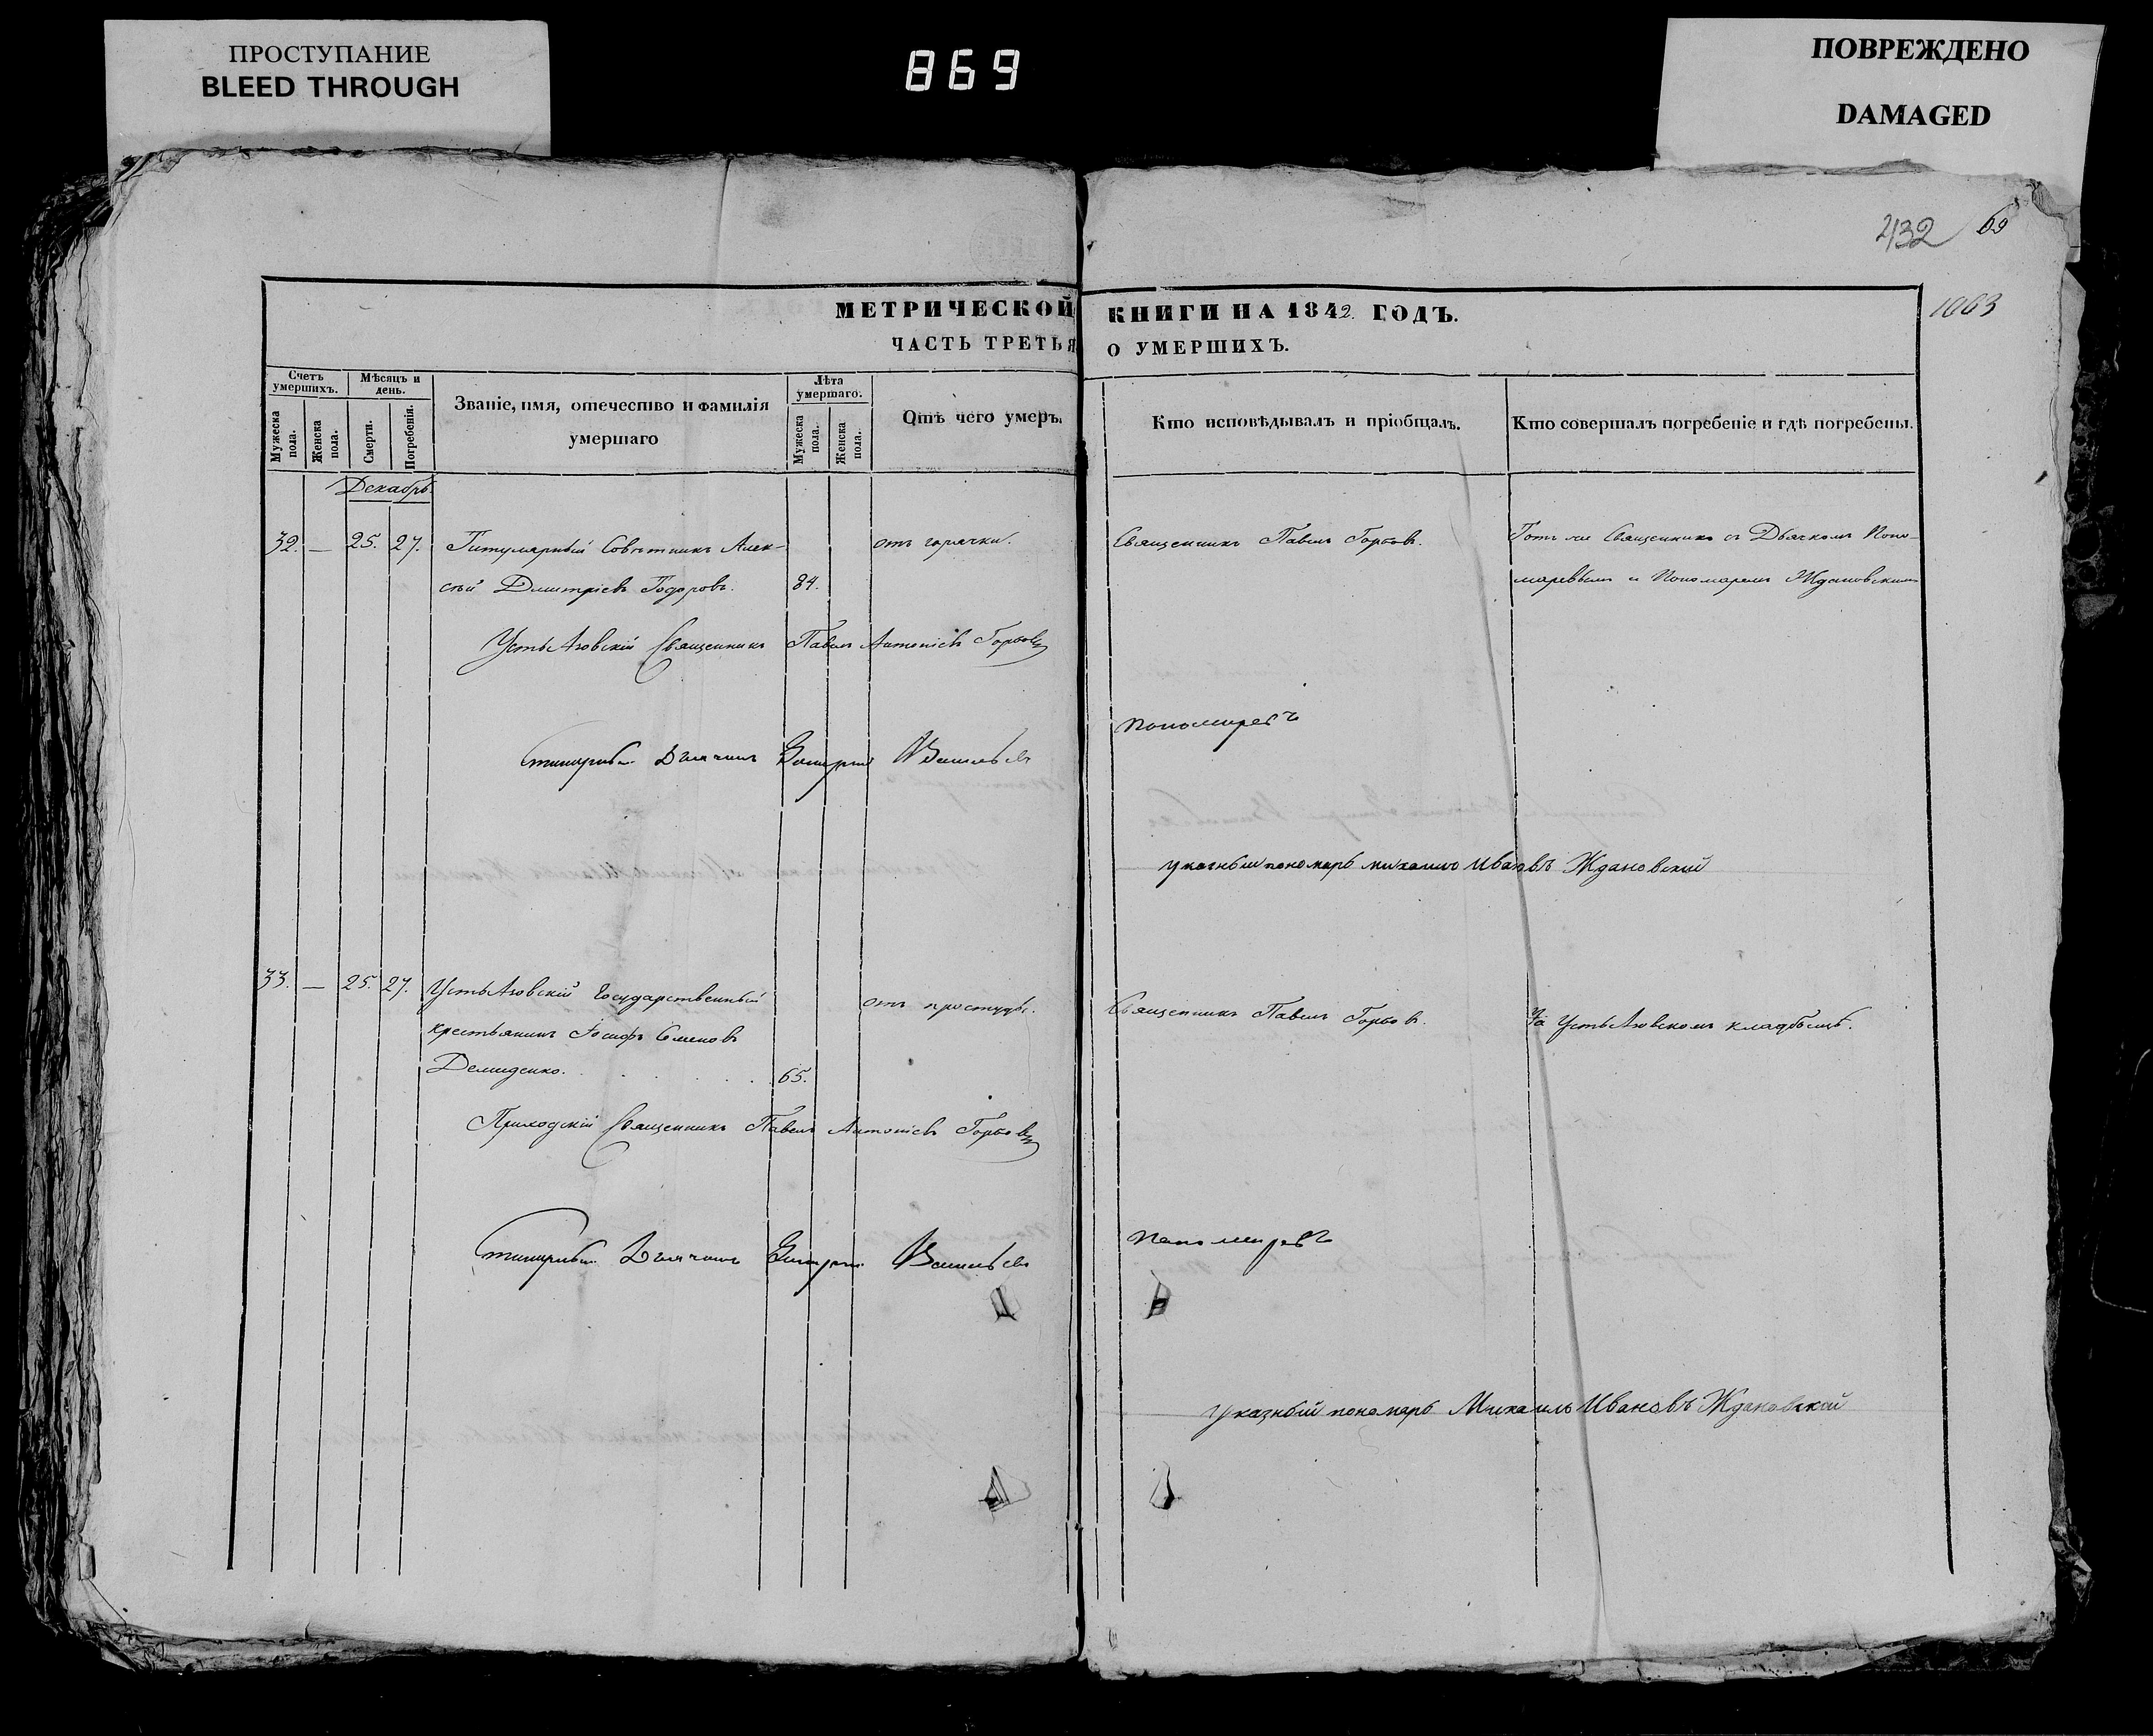 ПРОСТУПАНИЕ
BLEED THROUGH
869
ПОВРЕЖДЕНО
DAMAGED
432 69
1063
МЕТРИЧЕСКОЙ КНИГИ НА 1842 ГОДЪ.
ЧАСТЬ ТРЕТЬЯ О УМЕРШИХЪ.
Счетъ умершихъ.
Мужеска пола.
Женска пола.
Мѣсяцъ и день.
Смерти.
Погребенія.
Званіе, имя, отечество и фамилія
умершаго
Лѣта умершаго.
Мужеска пола.
Женска пола.
Отъ чего умеръ.
Кто исповѣдывалъ и пріобщалъ.
Кто совершалъ погребеніе и гдѣ погребены.
Декабрь
32. — 25. 27. Титулярный Совѣтникъ Алек- отъ горячки. Священникъ Павелъ Горбовъ. Тотъ же Священникъ съ Дьячкомъ Поно-
сѣй Дмитріевъ Тодоровъ. 84. маревымъ и Пономаремъ Ждановскимъ
Священникъ Павелъ Антоніевъ Горбовъ
Дьячокъ Васильевъ Пономаревъ
указный пономарь михаилъ Ивановъ Ждановский
33. — 25. 27. Государственный отъ простуды. Священникъ Павелъ Горбовъ. кладбищѣ.
крестьянинъ Іосифъ Семеновъ
Демиденко. 65.
Приходскій Священникъ Павелъ Антоніевъ Горбовъ
Дьячокъ Васильевъ Пономаревъ
указный пономарь Михаилъ Ивановъ Ждановский